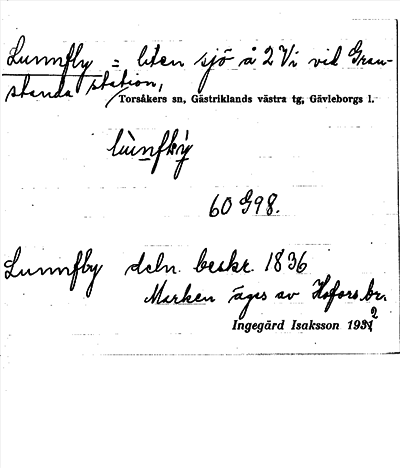 Lunnfly = liten sjö å 2 Vi vid Gran-
standa station,
Torsåkers sn, Gästriklands västra tg, Gävleborgs l.
60 G98.
Lunnfby deln. beskr. 1836
Marken äges av Hofors br.
Ingegärd Isaksson 1932